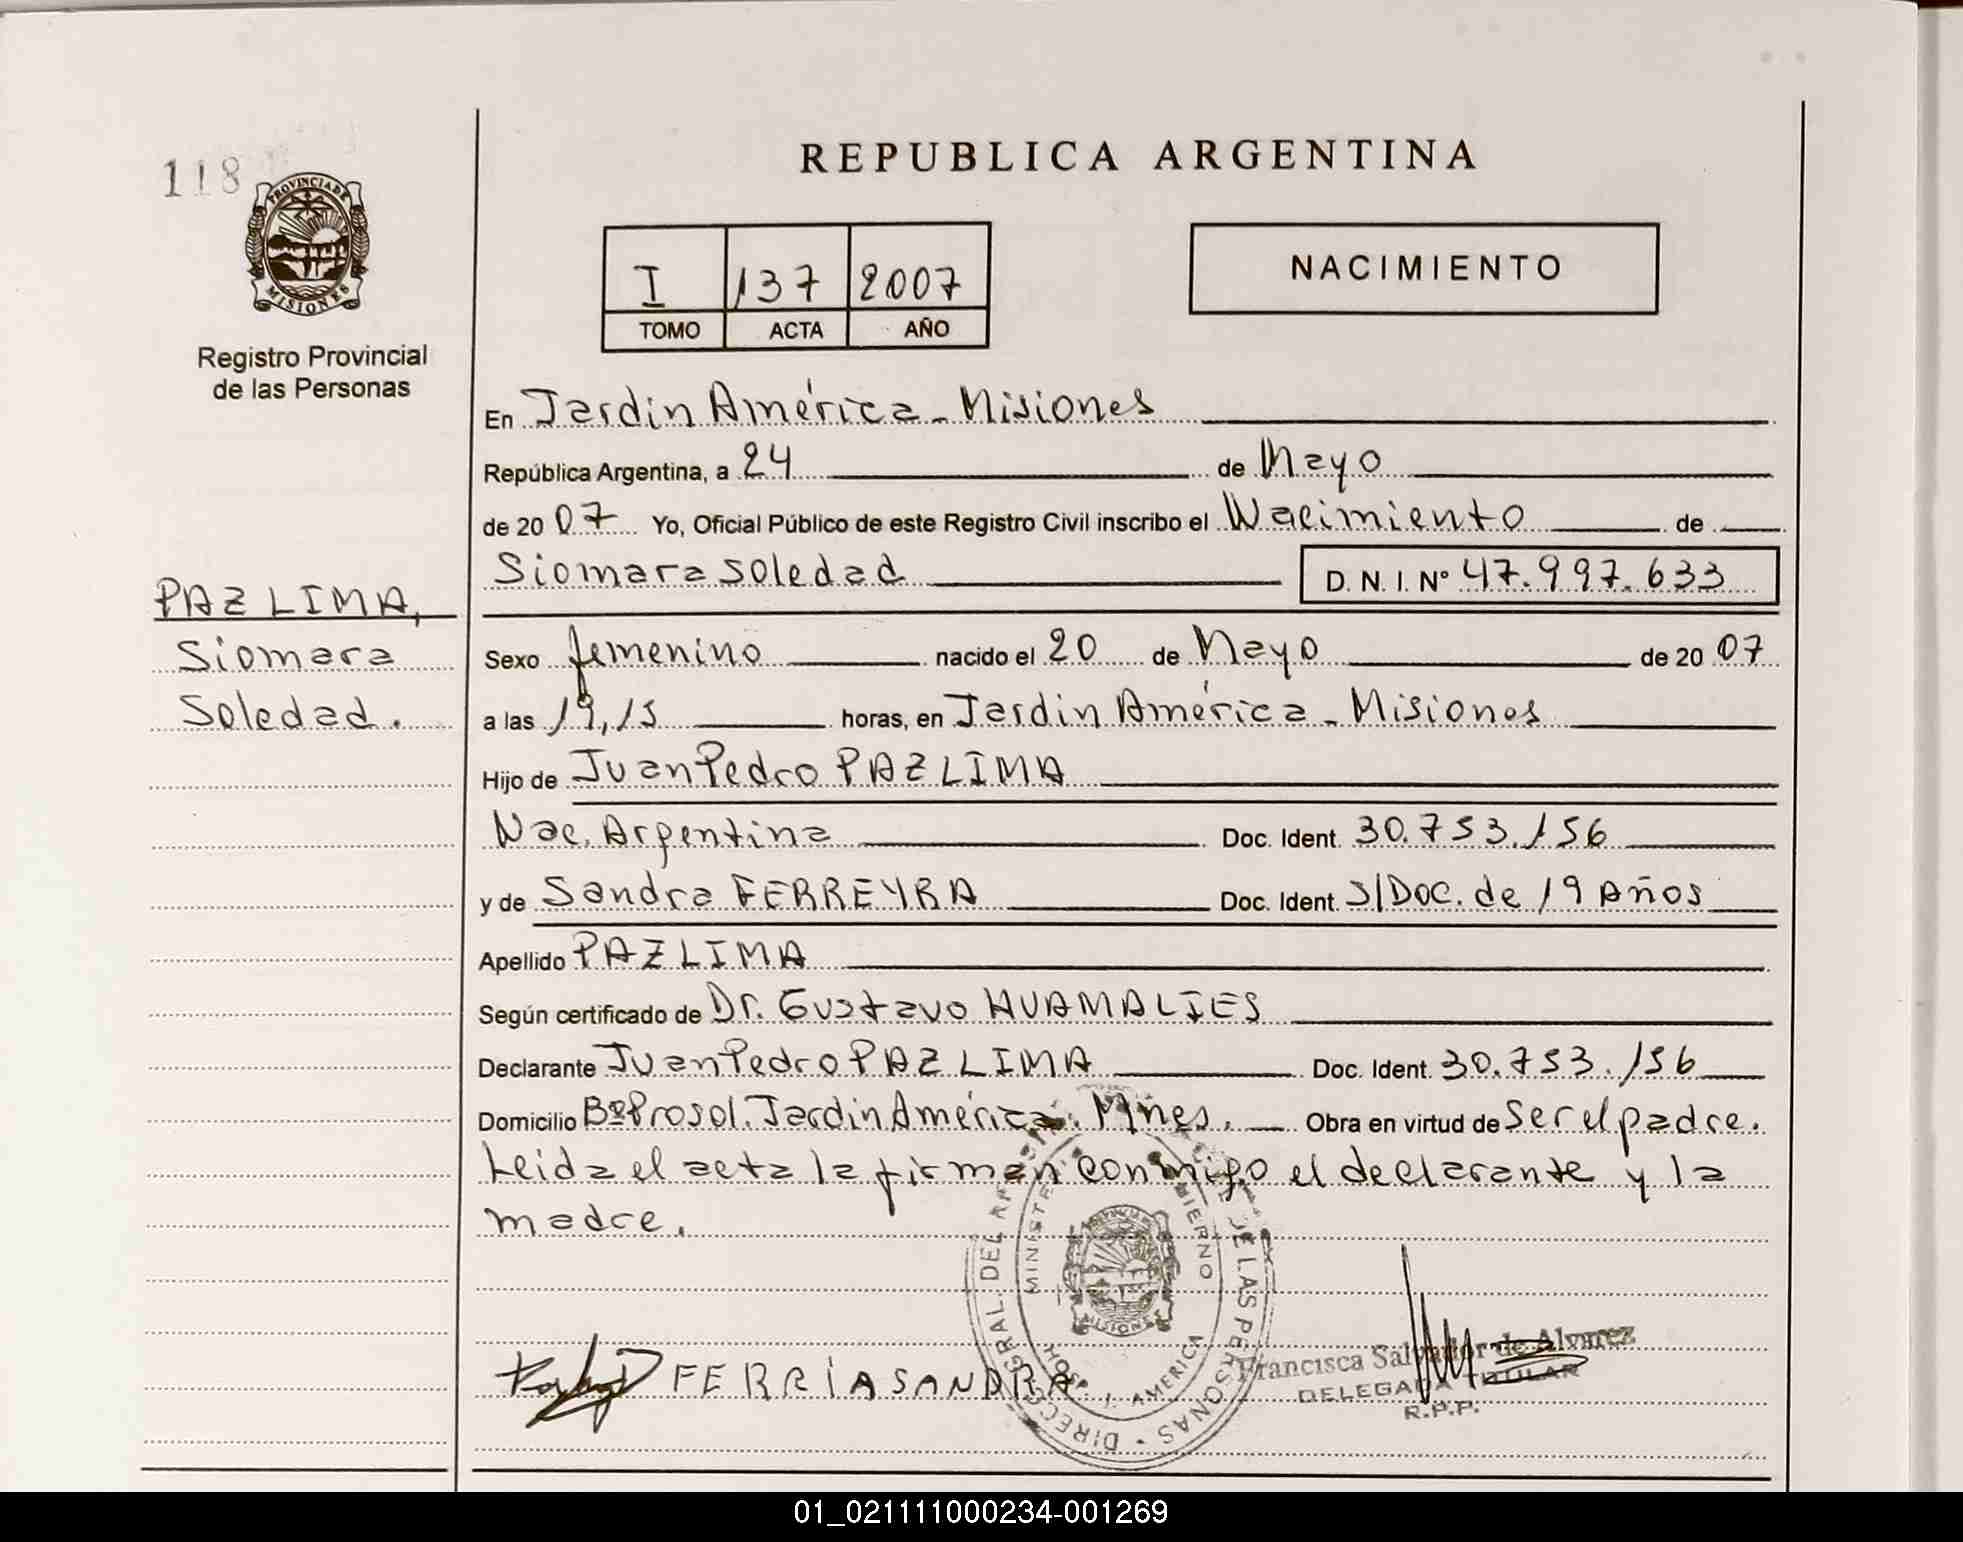 118
PROVINCIA DE
MISIONES
Registro Provincial
de las Personas
REPUBLICA ARGENTINA
I 137 2007
TOMO ACTA AÑO
NACIMIENTO
En Jardin América - Misiones
República Argentina, a 24 de Mayo
de 2007 Yo, Oficial Público de este Registro Civil inscribo el Nacimiento de
Siomara Soledad D. N. I. Nº 47.997.633
PAZ LIMA,
Siomara
Soledad.
Sexo femenino nacido el 20 de Mayo de 2007
a las 19,15 horas, en Jardin América - Misiones
Hijo de Juan Pedro PAZ LIMA
Nac. Argentina Doc. Ident. 30.753.156
y de Sandra FERREYRA Doc. Ident. S/Doc. de 19 Años
Apellido PAZ LIMA
Según certificado de Dr. Gustavo HUAMALIES
Declarante Juan Pedro PAZ LIMA Doc. Ident. 30.753.156
Domicilio Bº Prosol. Jardin América. Mnes. Obra en virtud de Ser el padre.
Leida el acta la firman conmigo el declarante y la
madre.
MISIONES
J. AMERICA
DE LAS PERSONAS
FERRIA SANDRA
Francisca Salvador de Alvarez
DELEGADA TITULAR
R.P.P.
01_021111000234-001269